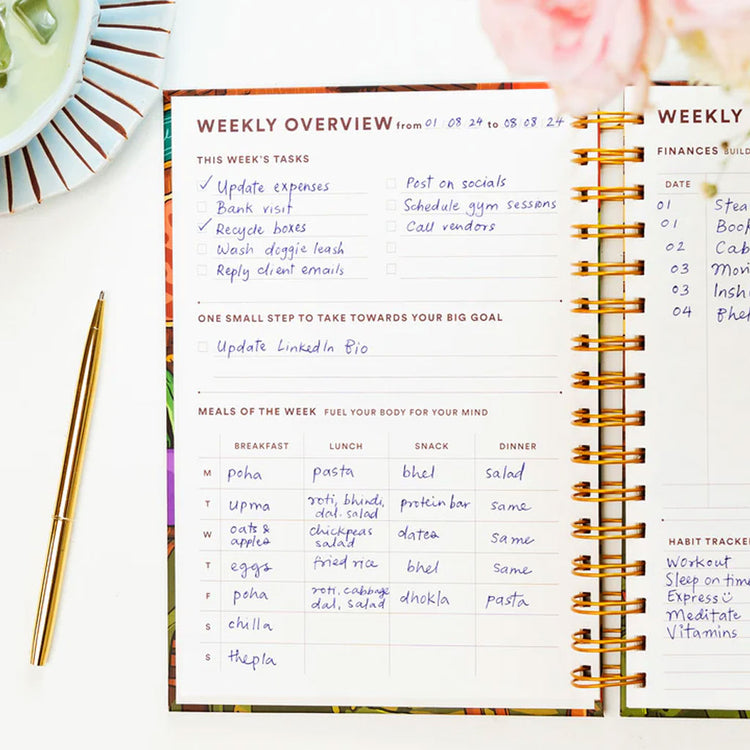 WEEKLY OVERVIEW from 01 08 24 to 08 08 24
THIS WEEK'S TASKS
Update expenses
Post on socials
Bank visit
Schedule gym sessions
Recycle boxes
Call vendors
Wash doggie leash
Reply client emails
ONE SMALL STEP TO TAKE TOWARDS YOUR BIG GOAL
Update LinkedIn Bio
MEALS OF THE WEEK FUEL YOUR BODY FOR YOUR MIND
BREAKFAST LUNCH SNACK DINNER
M poha pasta bhel salad
T upma roti, bhindi, dal. salad protein bar same
W oats & apples chickpeas salad dates same
T eggs fried rice bhel same
F poha roti, cabbage dal, salad dhokla pasta
S chilla
S thepla
WEEKLY
FINANCES
DATE
01
01
02
03
03
04
HABIT TRACKER
Workout
Sleep on time
Express
Meditate
Vitamins